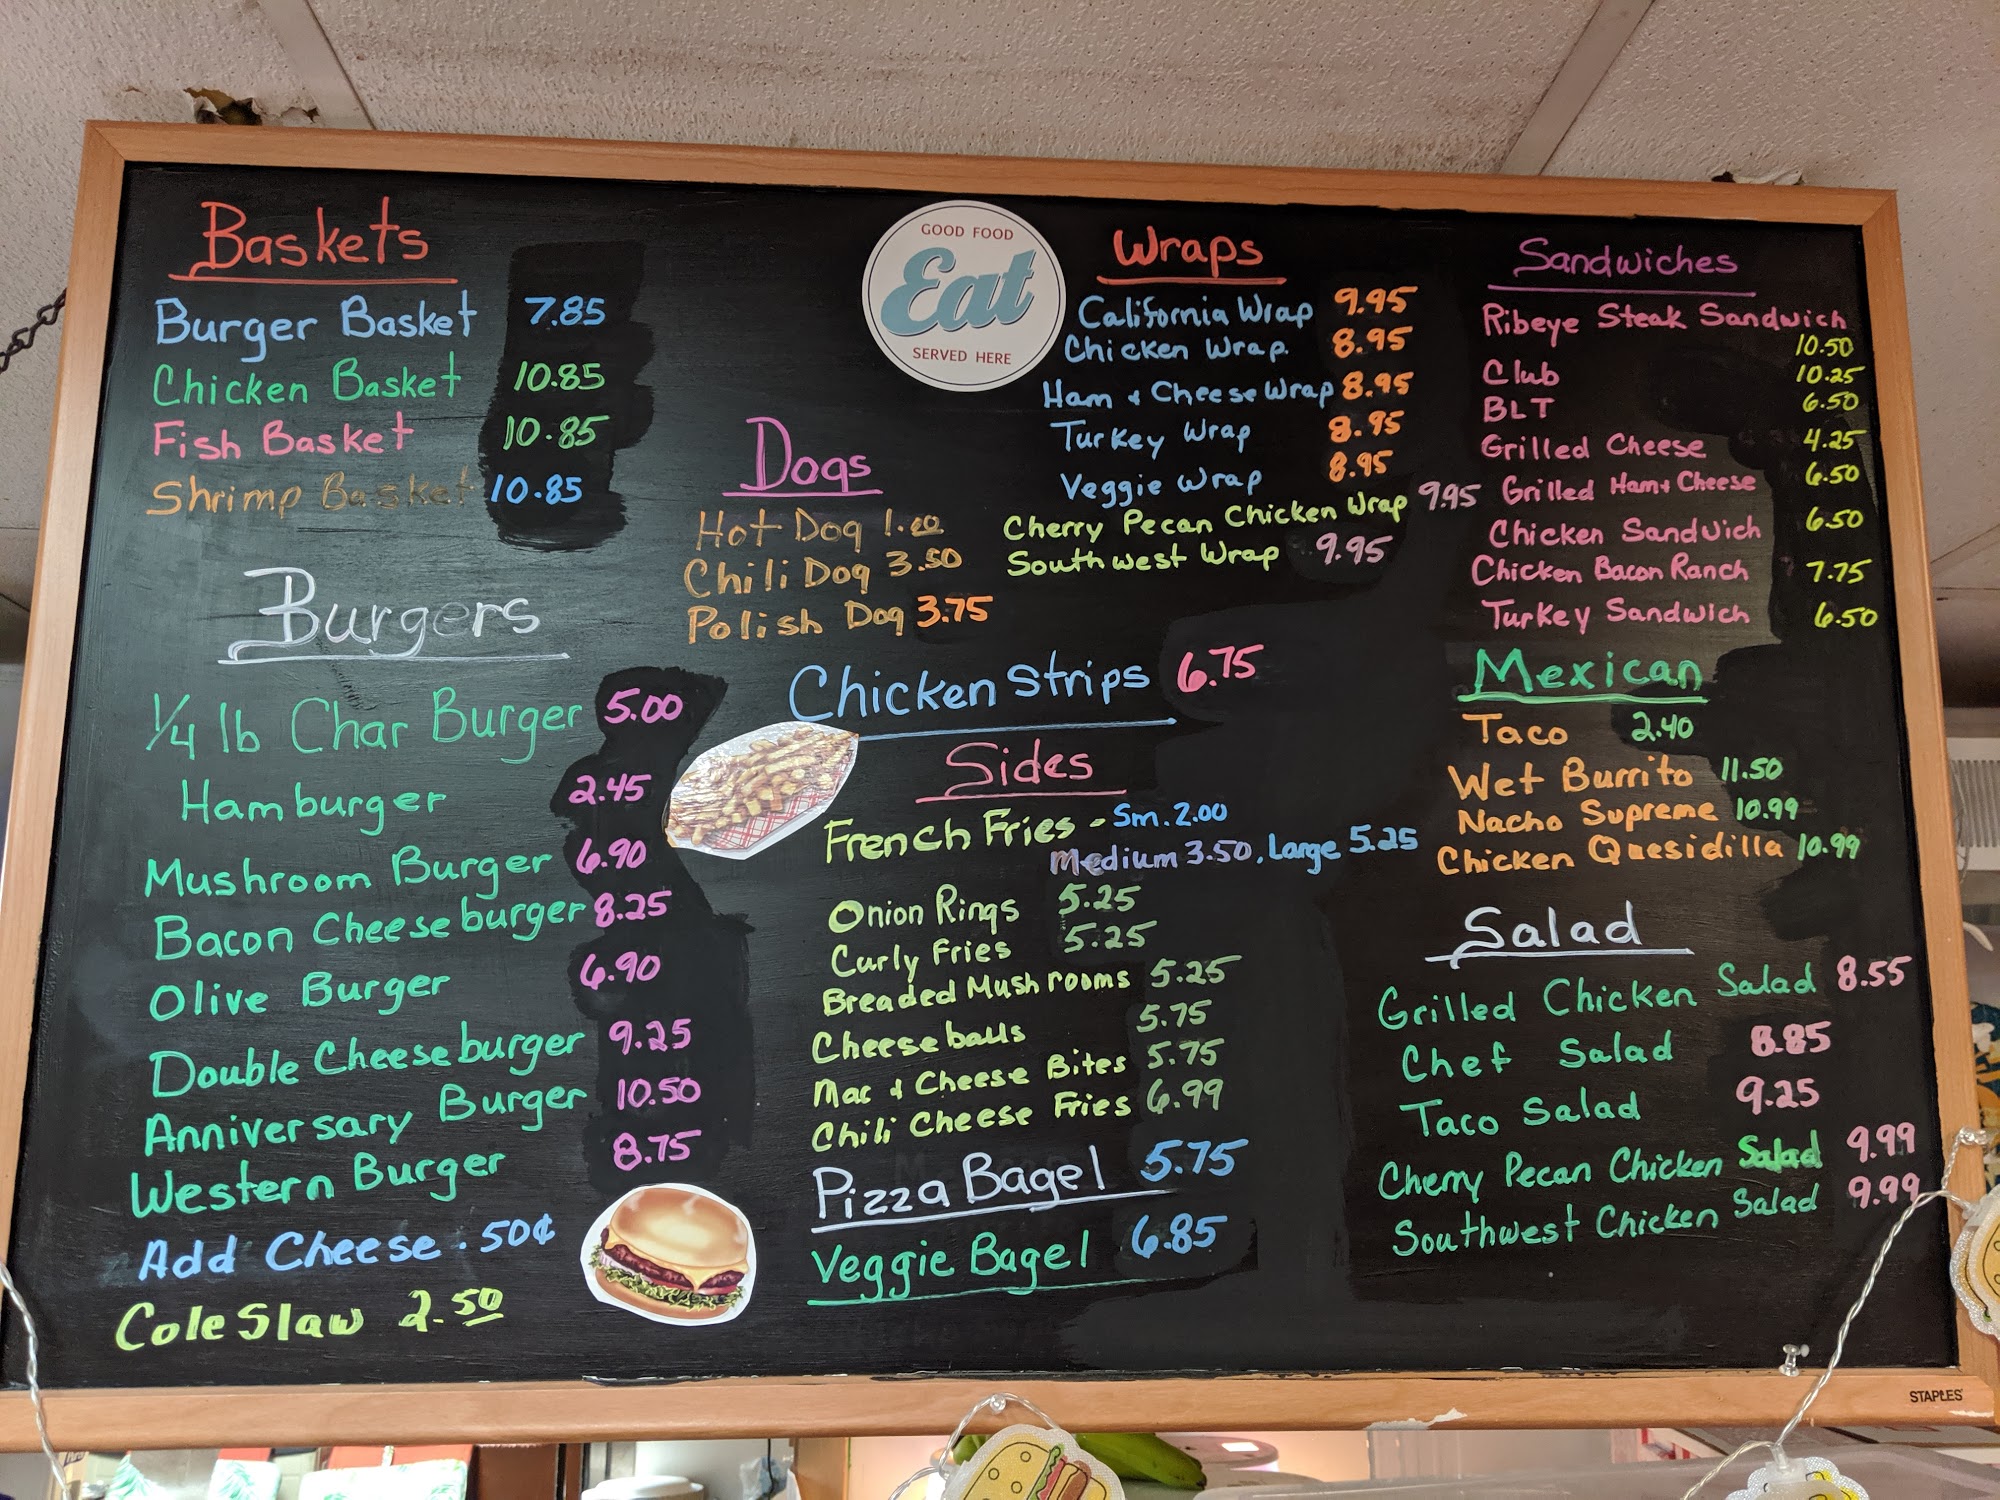 Baskets
Burger Basket 7.85
Chicken Basket 10.85
Fish Basket 10.85
Shrimp Basket 10.85
Burgers
1/4 lb Char Burger 5.00
Hamburger 2.45
Mushroom Burger 6.90
Bacon Cheeseburger 8.25
Olive Burger 6.90
Double Cheeseburger 9.25
Anniversary Burger 10.50
Western Burger 8.75
Add Cheese .50¢
Cole Slaw 2.50
GOOD FOOD
Eat
SERVED HERE
Dogs
Hot Dog 1.00
Chili Dog 3.50
Polish Dog 3.75
Chicken Strips 6.75
Sides
French Fries - Sm. 2.00
Medium 3.50, Large 5.25
Onion Rings 5.25
Curly Fries 5.25
Breaded Mushrooms 5.25
Cheeseballs 5.75
Mac & Cheese Bites 5.75
Chili Cheese Fries 6.99
Pizza Bagel 5.75
Veggie Bagel 6.85
Wraps
California Wrap 9.95
Chicken Wrap 8.95
Ham & Cheese Wrap 8.95
Turkey Wrap 8.95
Veggie Wrap 8.95
Cherry Pecan Chicken Wrap 9.95
Southwest Wrap 9.95
Sandwiches
Ribeye Steak Sandwich
10.50
Club 10.25
BLT 6.50
Grilled Cheese 4.25
Grilled Ham & Cheese 6.50
Chicken Sandwich 6.50
Chicken Bacon Ranch 7.75
Turkey Sandwich 6.50
Mexican
Taco 2.40
Wet Burrito 11.50
Nacho Supreme 10.99
Chicken Quesidilla 10.99
Salad
Grilled Chicken Salad 8.55
Chef Salad 8.85
Taco Salad 9.25
Cherry Pecan Chicken Salad 9.99
Southwest Chicken Salad 9.99
STAPLES